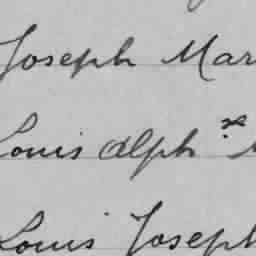 Joseph Mar
Louis alph se
Louis Joseph